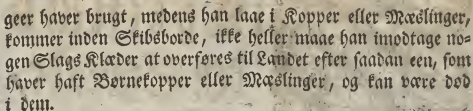 geer haver brugt, medens han laae i Kopper eller Mæslinger,
kommer inden Skibsborde, ikke heller maae han imodtage no-
gen Slags Klæder at overføres til Landet efter saadan een, som
haver haft Børnekopper eller Mæslinger, og kan være død
i dem.